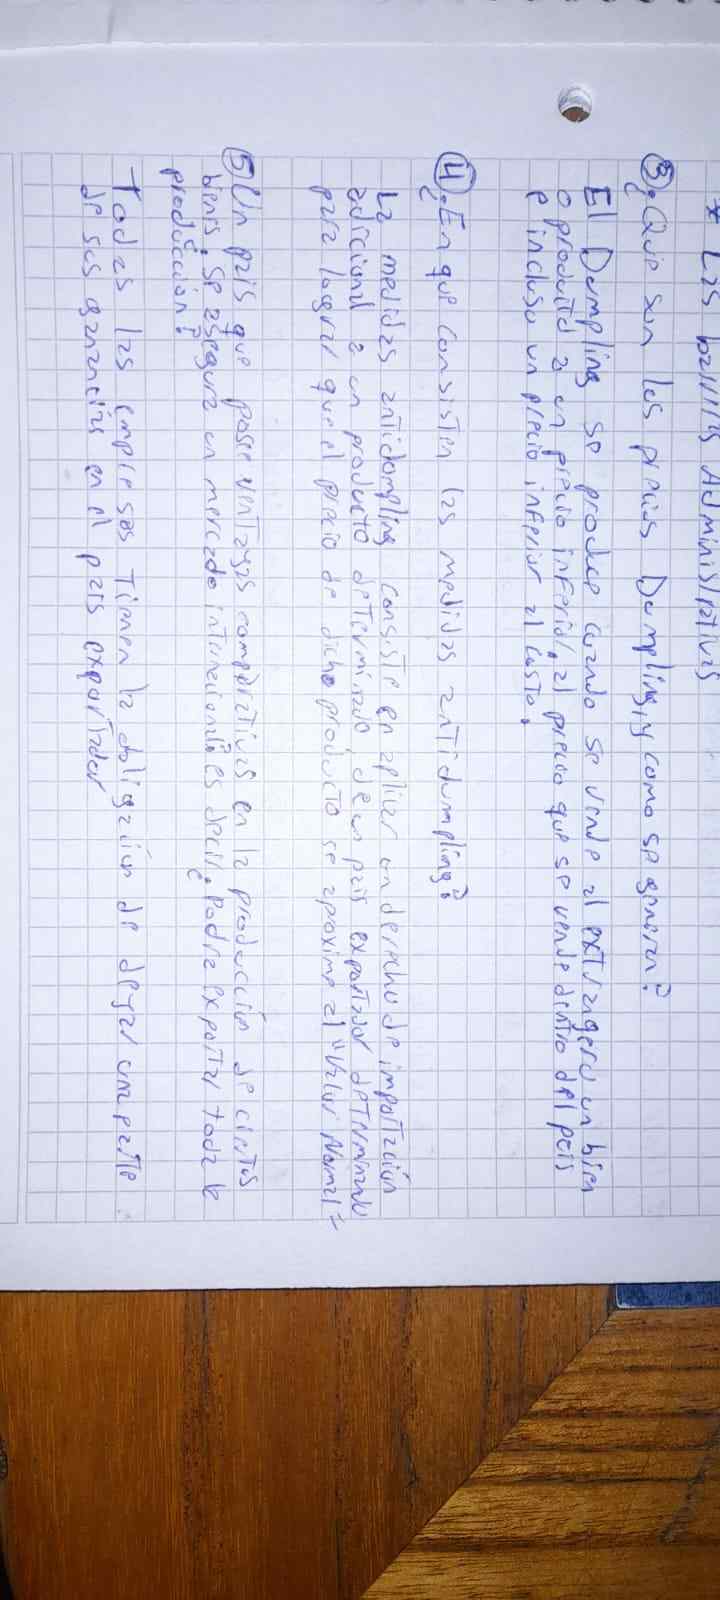 * Las barreras Administrativas
③ ¿Que son los precios Dumpling, y como se generan?
El Dumpling se produce cuando se vende al extrangero un bien
o producto a un precio inferior, al precio que se vende dentro del pais
e incluso un precio inferior al costo.
④ ¿En que consisten las medidas antidumpling?
La medidas antidompling consiste en apliar un derecho de importación
adicional a un producto determinado, de un pais exportador determinado
para lograr que el precio de dicho producto se aproxime al "Valor Normal"
⑤ Un pais que posee ventajas comparativas en la producción de ciertos
bienes, se asegura un mercado internacional es decir, ¿Podra exportar toda la
producción?
Todas las empresas tienen la obligación de dejar una parte
de sus ganancias en el pais exportador